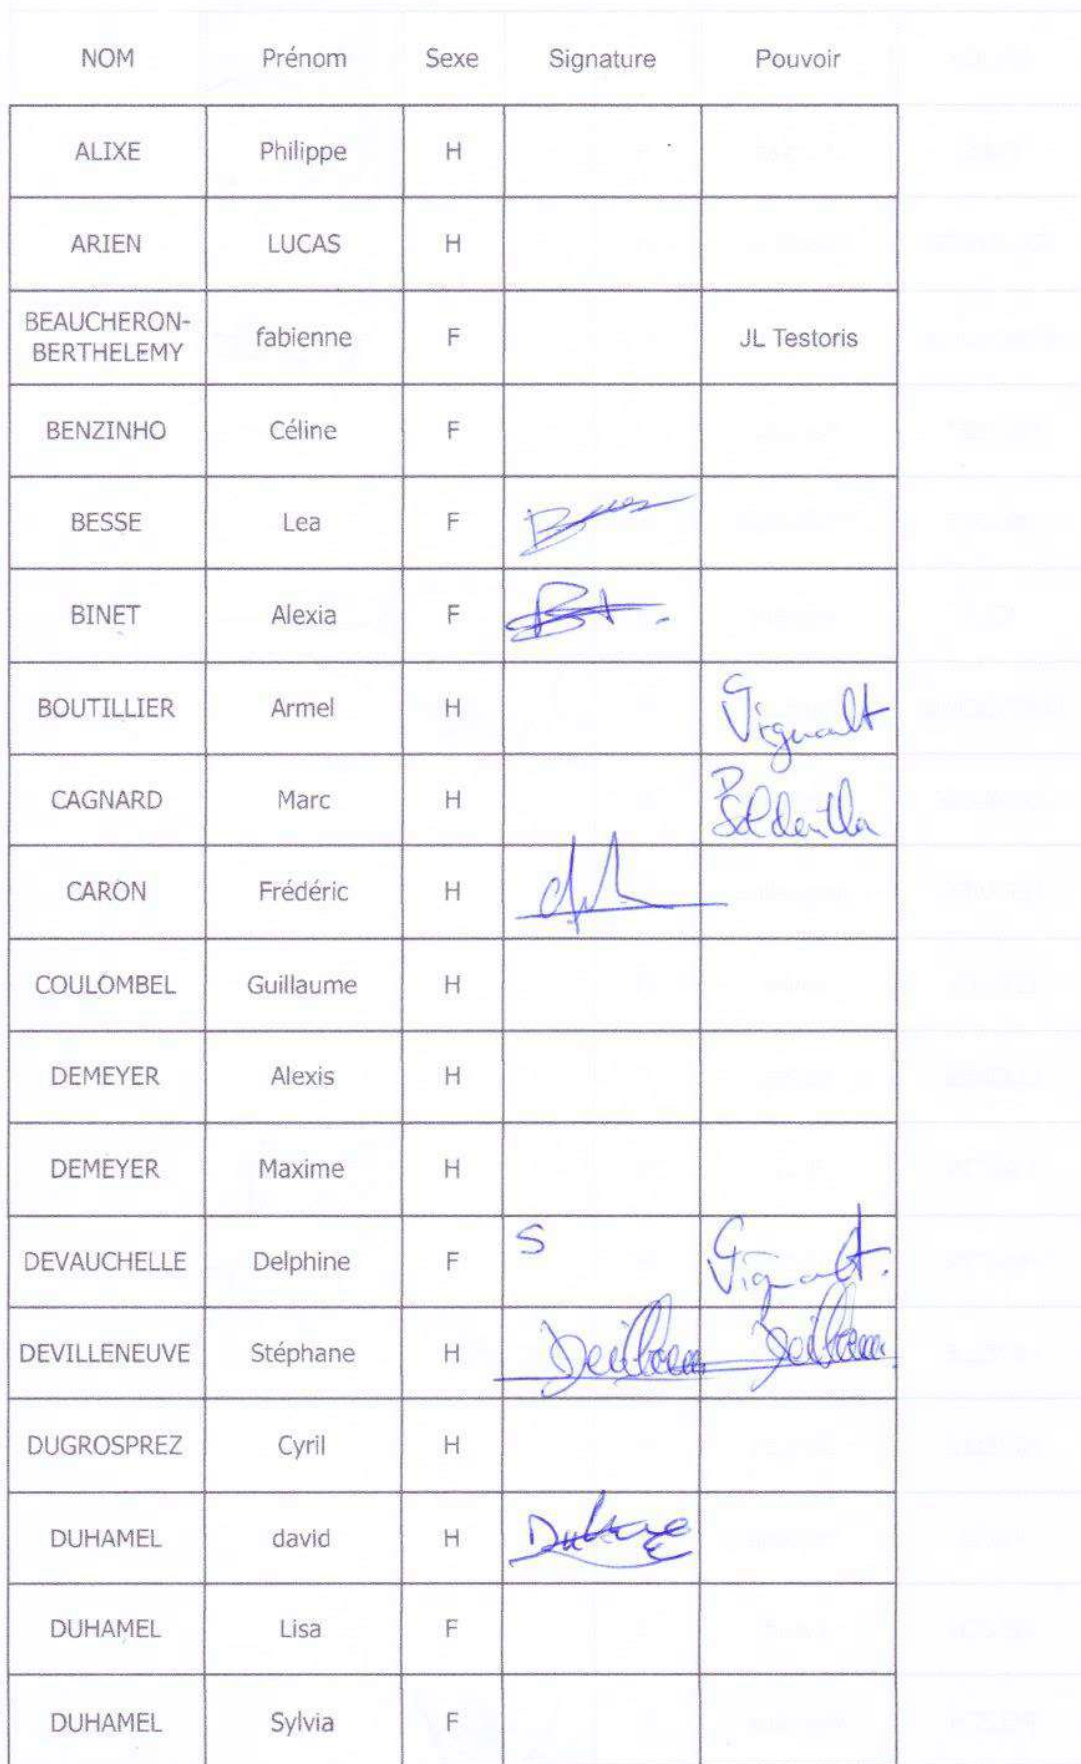 NOM Prénom Sexe Signature Pouvoir
ALIXE Philippe H
ARIEN LUCAS H
BEAUCHERON-
BERTHELEMY fabienne F JL Testoris
BENZINHO Céline F
BESSE Lea F
BINET Alexia F
BOUTILLIER Armel H Vignault
CAGNARD Marc H
CARON Frédéric H
COULOMBEL Guillaume H
DEMEYER Alexis H
DEMEYER Maxime H
DEVAUCHELLE Delphine F S Vignault.
DEVILLENEUVE Stéphane H
DUGROSPREZ Cyril H
DUHAMEL david H
DUHAMEL Lisa F
DUHAMEL Sylvia F